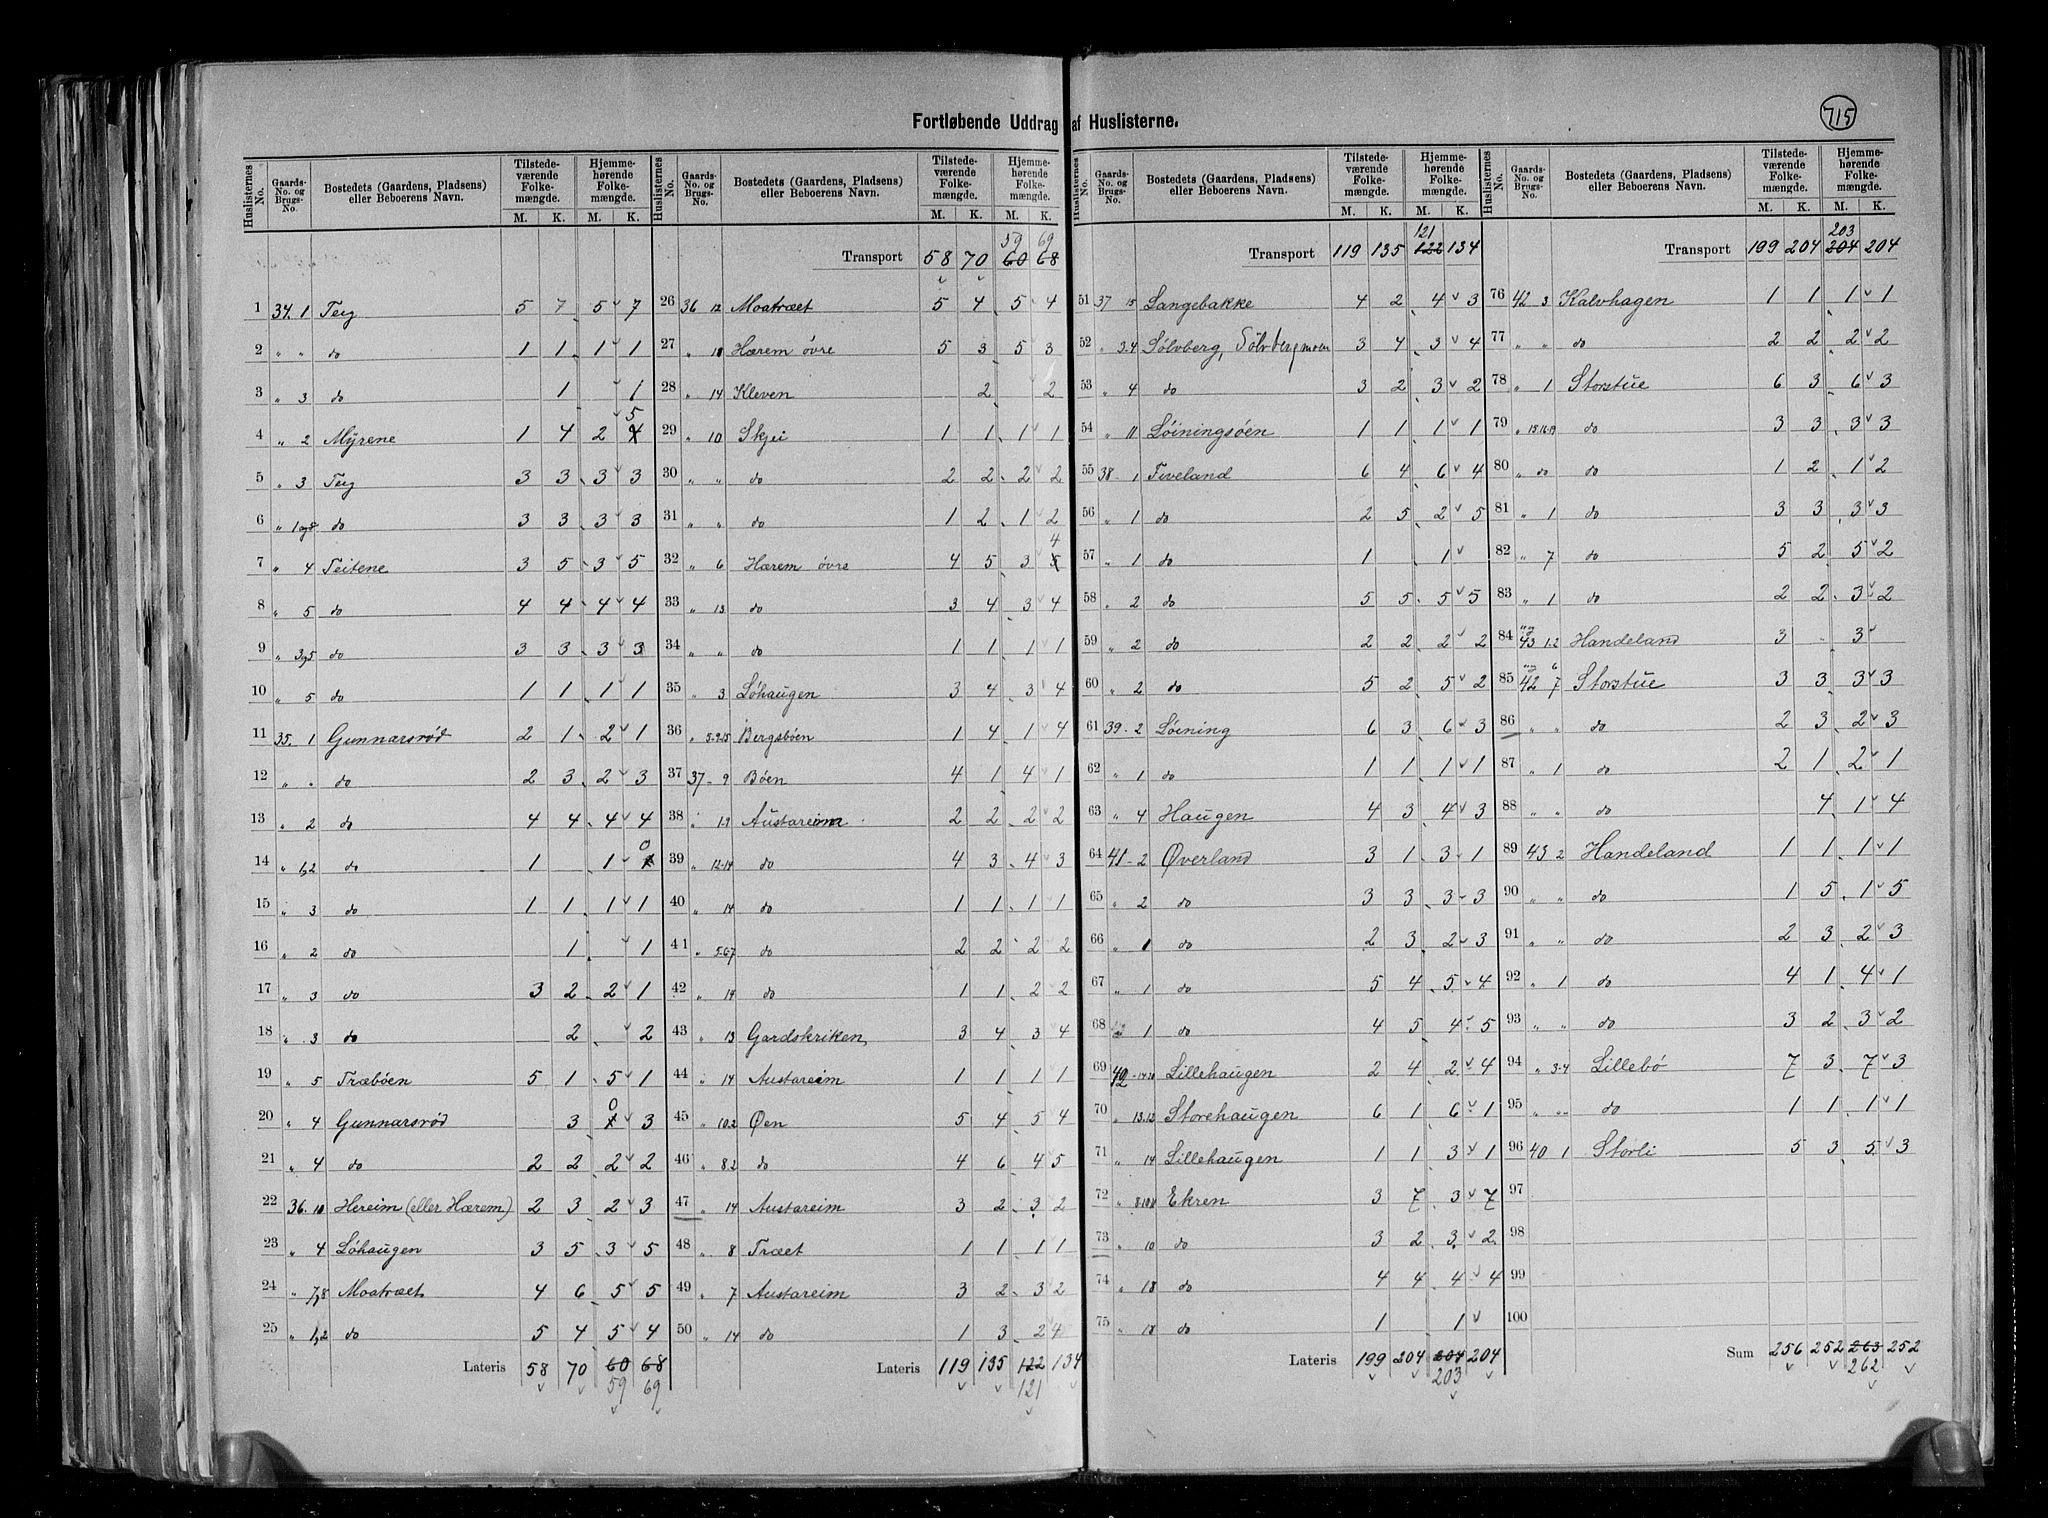 715
Fortløbende Uddrag af Huslisterne.
Huslisternes No. Gaards-No. og Brugs-No. Bostedets (Gaardens, Pladsens) eller Beboerens Navn. Tilstede-værende Folke-mængde. M. K. Hjemme-hørende Folke-mængde. M. K.
1 34. 1 Teig 5 7 5 7
2 " " do 1 1 1 1
3 " 3 do 1 1
4 " 2 Myrene 1 4 2 4 5
5 " 3 Teig 3 3 3 3
6 " 1og8 do 3 3 3 3
7 " 4 Teitene 3 5 3 5
8 " 5 do 4 4 4 4
9 " 3,5 do 3 3 3 3
10 " 5 do 1 1 1 1
11 35. 1 Gunnarsrød 2 1 2 1
12 " " do 2 3 2 3
13 " 2 do 4 4 4 4
14 " 1,2 do 1 1 0
15 " 3 do 1 1 1 1
16 " 2 do 1 1
17 " 3 do 3 2 2 1
18 " 3 do 2 2
19 " 5 Træbøen 5 1 5 1
20 " 4 Gunnarsrød 3 0 3
21 " 4 do 2 2 2 2
22 36. 10 Hereim (eller Hærem) 2 3 2 3
23 " 4 Løhaugen 3 5 3 5
24 " 7,8 Moatræet 4 6 5 5
25 " 1,2 do 5 4 5 4
Lateris 58 70 60 68
59 69
Huslisternes No. Gaards-No. og Brugs-No. Bostedets (Gaardens, Pladsens) eller Beboerens Navn. Tilstede-værende Folke-mængde. M. K. Hjemme-hørende Folke-mængde. M. K.
59 69
Transport 58 70 60 68
26 36 12 Moatræet 5 4 5 4
27 " 10 Hærem øvre 5 3 5 3
28 " 14 Kleven 2 2
29 " 10 Skjei 1 1 1 1
30 " " do 2 2 2 2
31 " " do 1 2 1 2
32 " 6 Hærem øvre 4 5 3 5 4
33 " 13 do 3 4 3 4
34 " " do 1 1 1 1
35 " 3 Løhaugen 3 4 3 4
36 " 5.9.15 Bergsbøen 1 4 1 4
37 37 9 Bøen 4 1 4 1
38 " 1.9 Austareim 2 2 2 2
39 " 12.14 do 4 3 4 3
40 " 14 do 1 1 1 1
41 " 5.67 do 2 2 2 2
42 " 14 do 1 1 2 2
43 " 13 Gardskriken 3 4 3 4
44 " 14 Austareim 1 1 1 1
45 " 10.2 Øen 5 4 5 4
46 " 8.2 do 4 6 4 5
47 " 14 Austareim 3 2 3 2
48 " 8 Træet 1 1 1 1
49 " 7 Austareim 3 2 3 2
50 " 14 do 1 3 2 4
Lateris 119 135 122 134
121
Huslisternes No. Gaards-No. og Brugs-No. Bostedets (Gaardens, Pladsens) eller Beboerens Navn. Tilstede-værende Folke-mængde. M. K. Hjemme-hørende Folke-mængde. M. K.
121
Transport 119 135 122 134
51 37 15 Langebakke 4 2 4 3
52 " 3.4 Sølvberg, Sølvbergmoen 3 4 3 4
53 " 4 do 3 2 3 2
54 " 11 Løiningsøen 1 1 1 1
55 38 1 Tveland 6 4 6 4
56 " 1 do 2 5 2 5
57 " 1 do 1 1
58 " 2 do 5 5 5 5
59 " 2 do 2 2 2 2
60 " 2 do 5 2 5 2
61 39 2 Løining 6 3 6 3
62 " 1 do 1 1 1 1
63 " 4 Haugen 4 3 4 3
64 41 2 Øverland 3 1 3 1
65 " 2 do 3 3 3 3
66 " 1 do 2 3 2 3
67 " 1 do 5 4 5 4
68 1 do 4 5 4 5
69 42 Lillehaugen 2 4 2 4
70 " 13.12 Storehaugen 6 1 6 1
71 " 14 Lillehaugen 1 1 3 1
72 " Ekren 3 7 3 7
73 " 10 do 3 2 3 2
74 " 18 do 4 4 4 4
75 " 18 do 1 1
Lateris 199 204 204 204
203
Huslisternes No. Gaards-No. og Brugs-No. Bostedets (Gaardens, Pladsens) eller Beboerens Navn. Tilstede-værende Folke-mængde. M. K. Hjemme-hørende Folke-mængde. M. K.
203
Transport 199 204 204 204
76 42 3 Kalvhagen 1 1 1 1
77 " " do 2 2 2 2
78 " 1 Storstue 6 3 6 3
79 " 15.16.19 do 3 3 3 3
80 " do do 1 2 1 2
81 " 1 do 3 3 3 3
82 " 7 do 5 2 5 2
83 " 1 do 2 2 3 2
84 43 1.2 Handeland 3 " 3
85 42 6 7 Storstue 3 3 3 3
86 " " do 2 3 2 3
87 " 1 do 2 1 2 1
88 " " do 4 1 4
89 43 2 Handeland 1 1 1 1
90 " " do 1 5 1 5
91 " " do 2 3 2 3
92 " 1 do 4 1 4 1
93 " " do 3 2 3 2
94 " 3.4 Lillebø 7 3 7 3
95 " " do 1 1 1 1
96 40 1 Storli 5 3 5 3
97
98
99
100
Sum 256 252 263 252
262